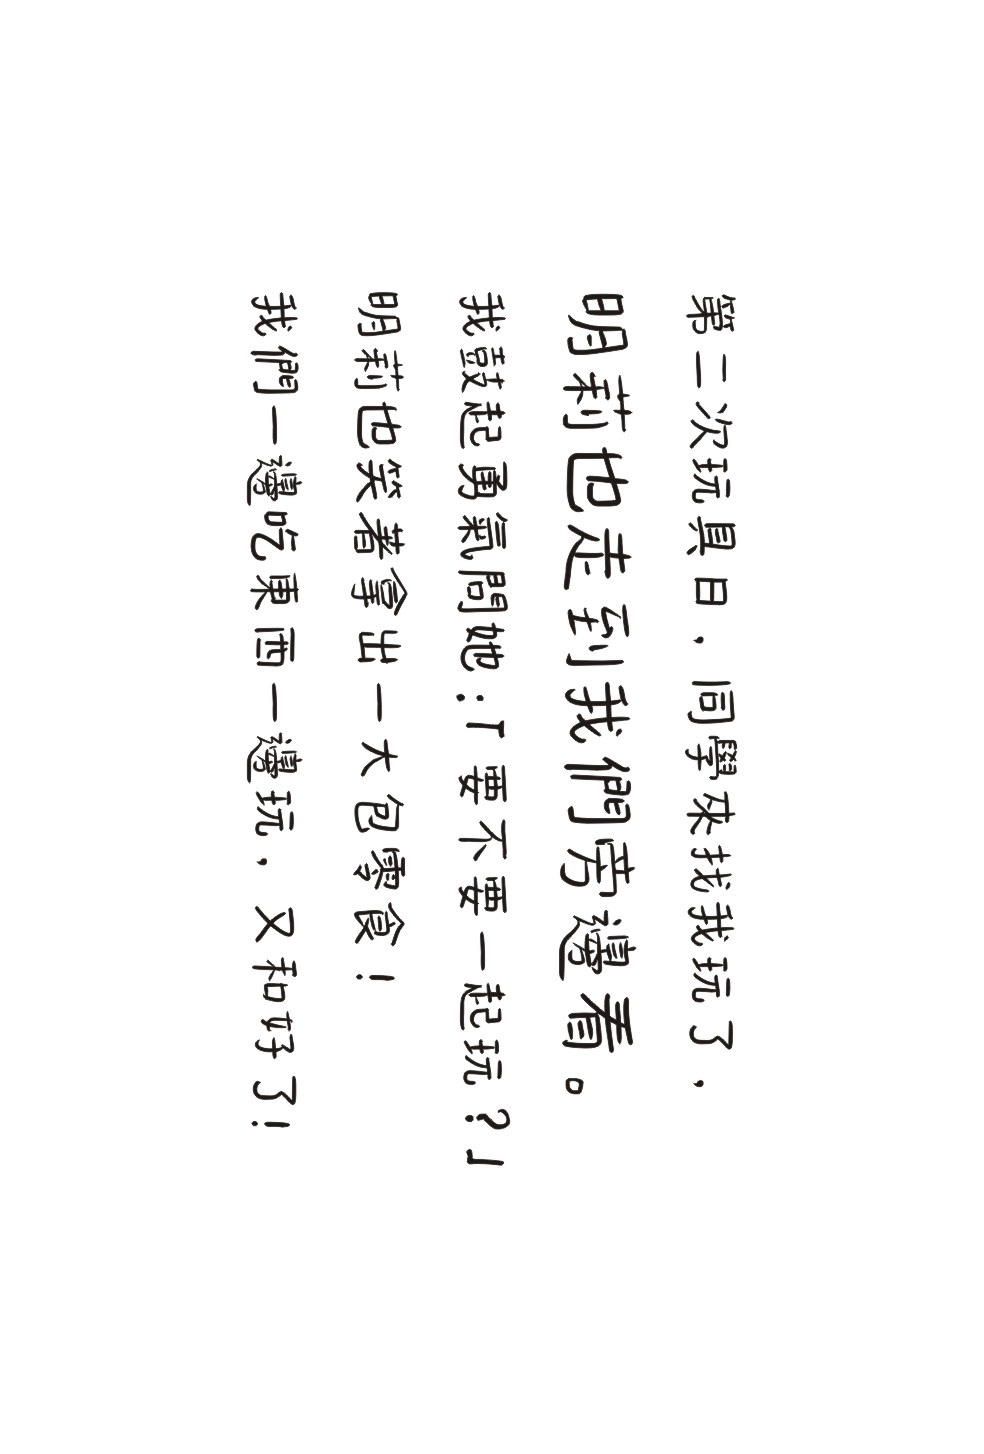 第二次玩具日，同學來找我玩了，
明莉也走到我們旁邊看。
我鼓起勇氣問她：「要不要一起玩？」
明莉也笑著拿出一大包零食！
我們一邊吃東西一邊玩，又和好了！